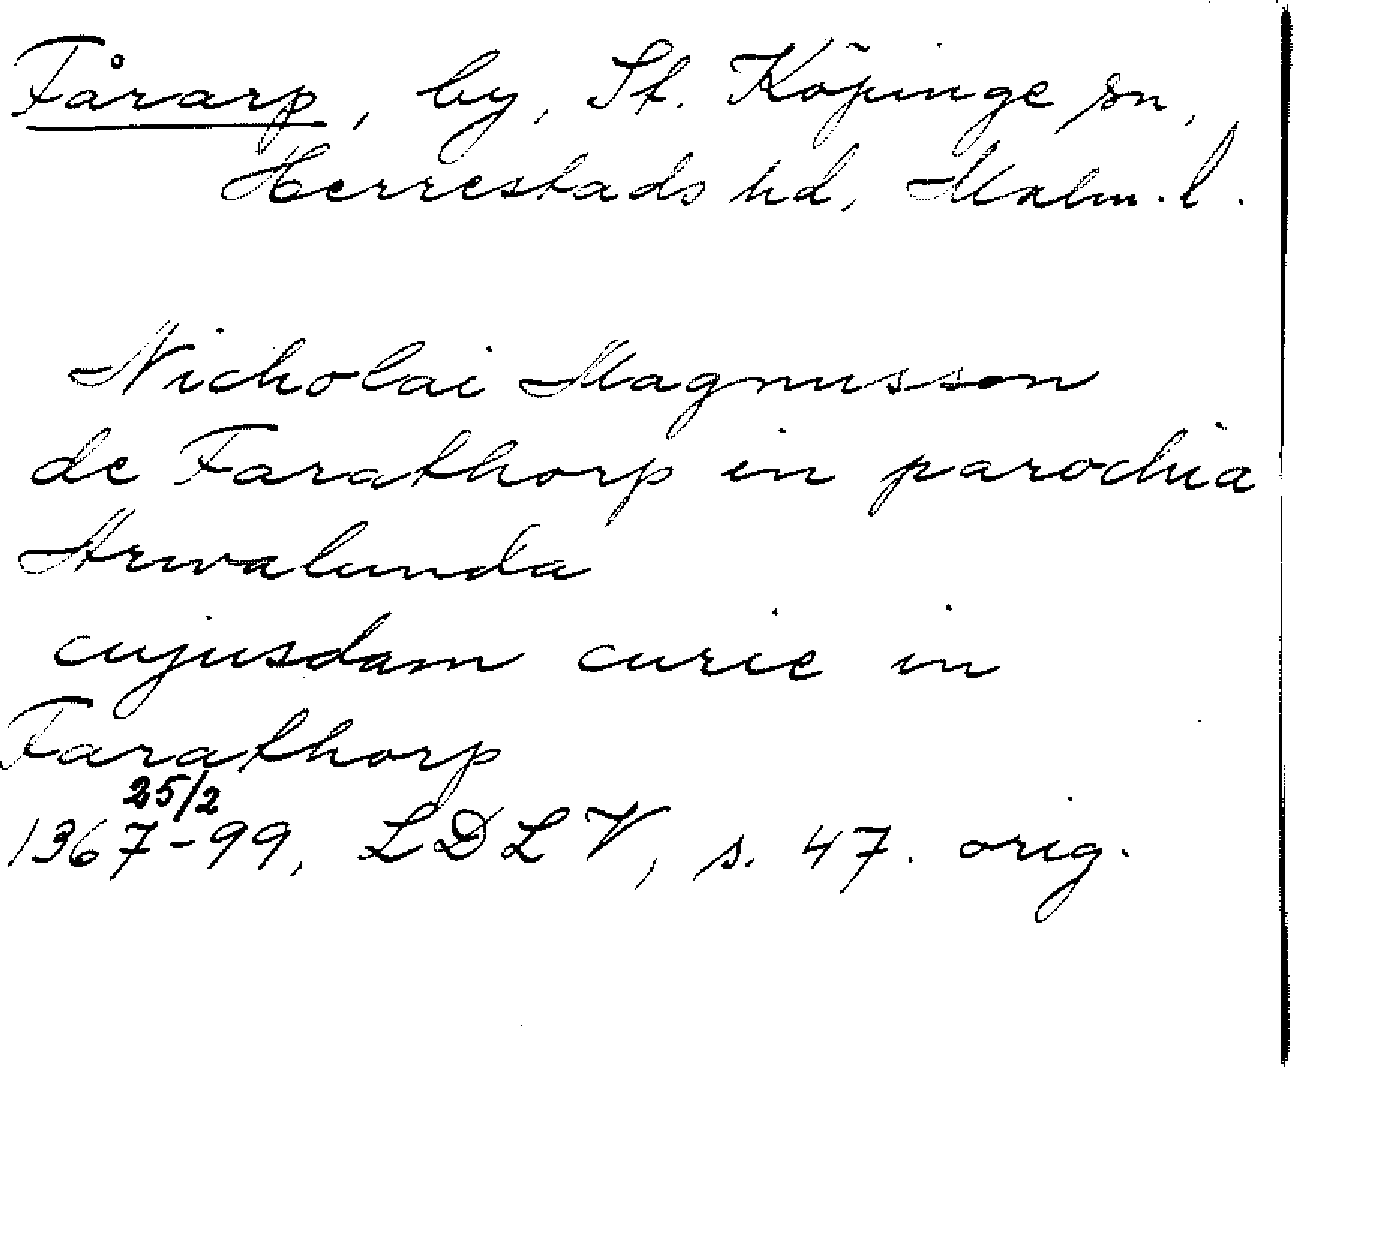 Fårarp, by, St. Köpinge sn,
Herrestads hd, Malm. l.
Nicholai Magnusson
de Farathorp in parochia
Hrwalunda
cujusdam curie in
Farathorp
25/2
1367-99, LDL V, s. 47. orig.